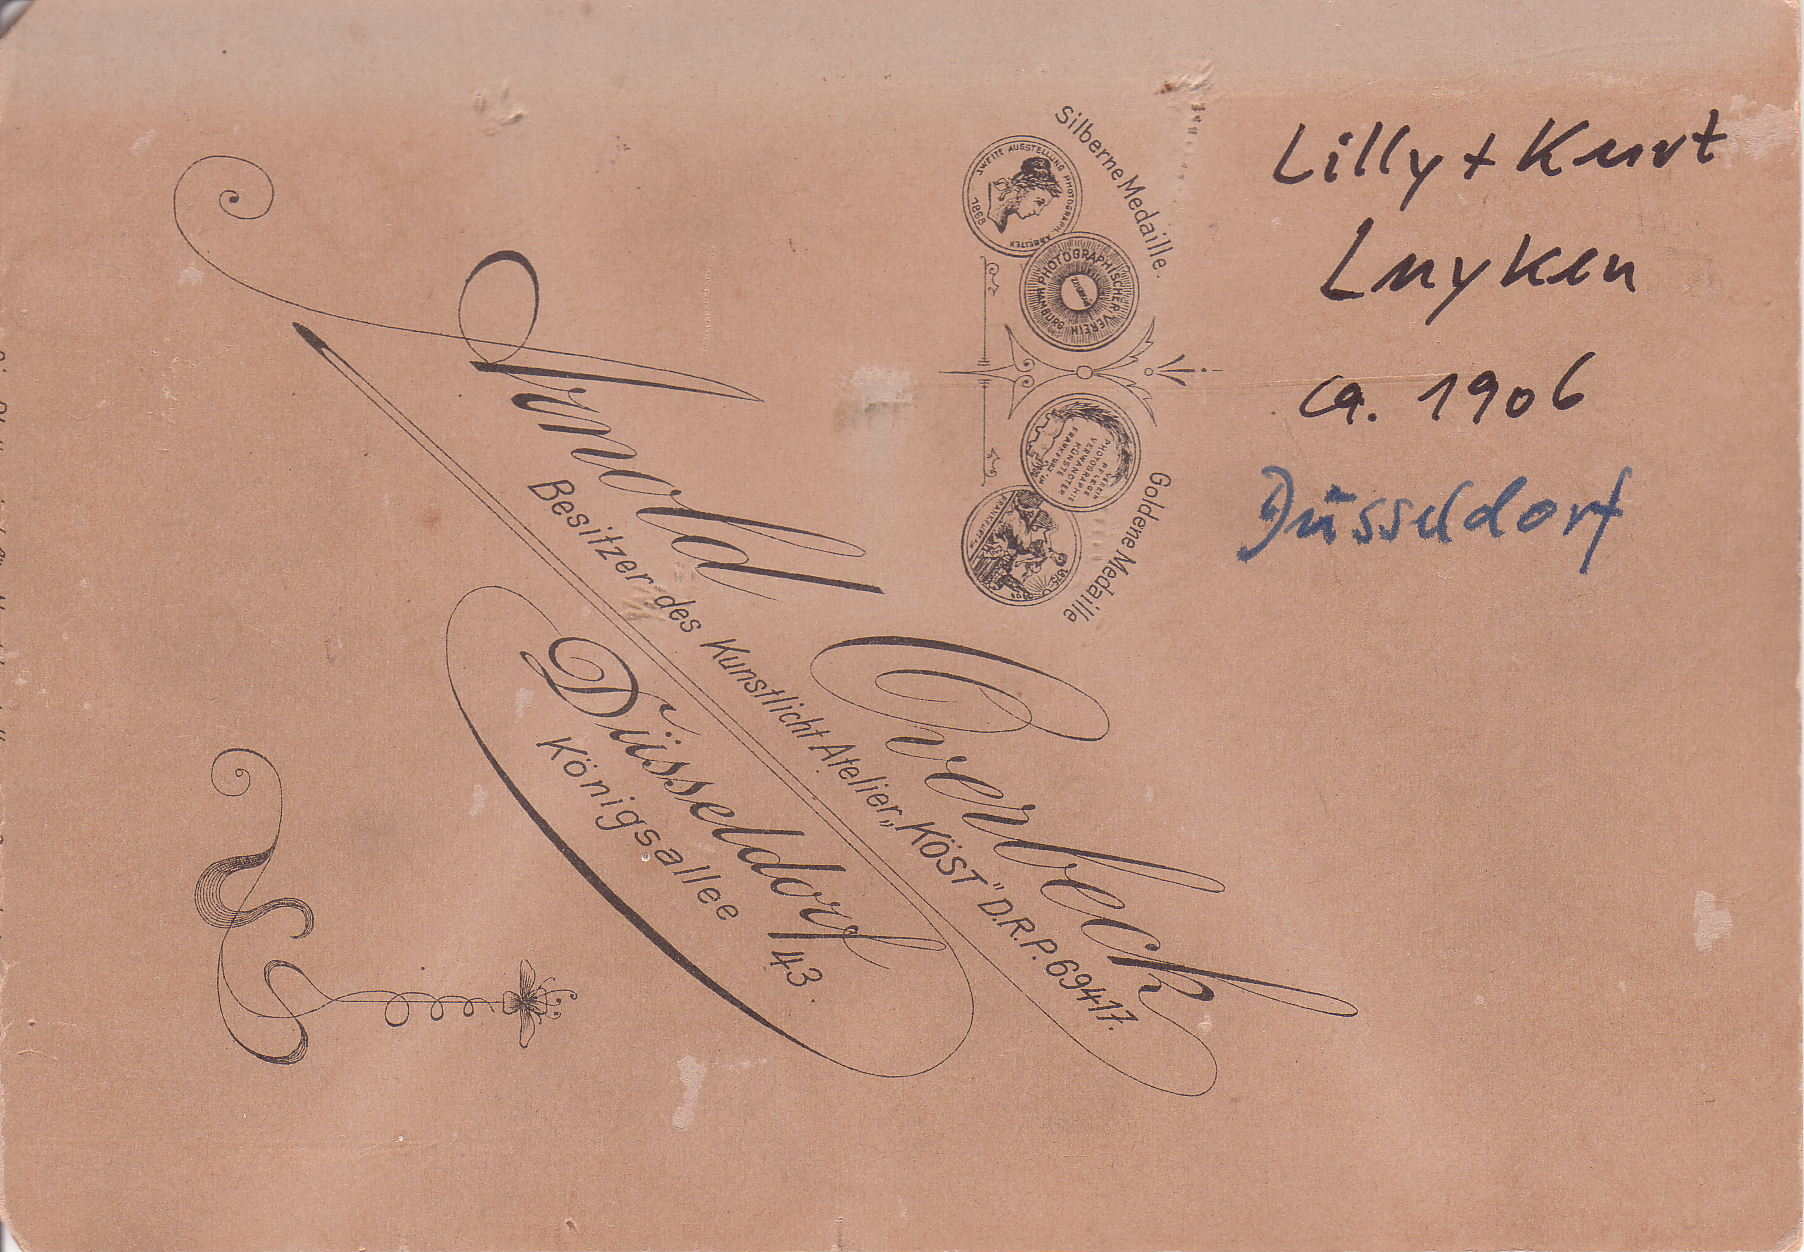 Lilly + Kurt
Luyken
ca. 1906
Düsseldorf
Silberne Medaille.
ZWEITE AUSSTELLUNG PHOTOGRAPH. ARBEITEN
1868
PHOTOGRAPHISCHER VEREIN
HAMBURG
VEREIN
PFLEGE
PHOTOGRAPHIE
VERWANDTER
KÜNSTE
FRANKFURT
Goldene Medaille
Arnold Overbeck
Besitzer des Kunstlicht Atelier „KÖST" D.R.P. 69417.
Düsseldorf
Königsallee 43.